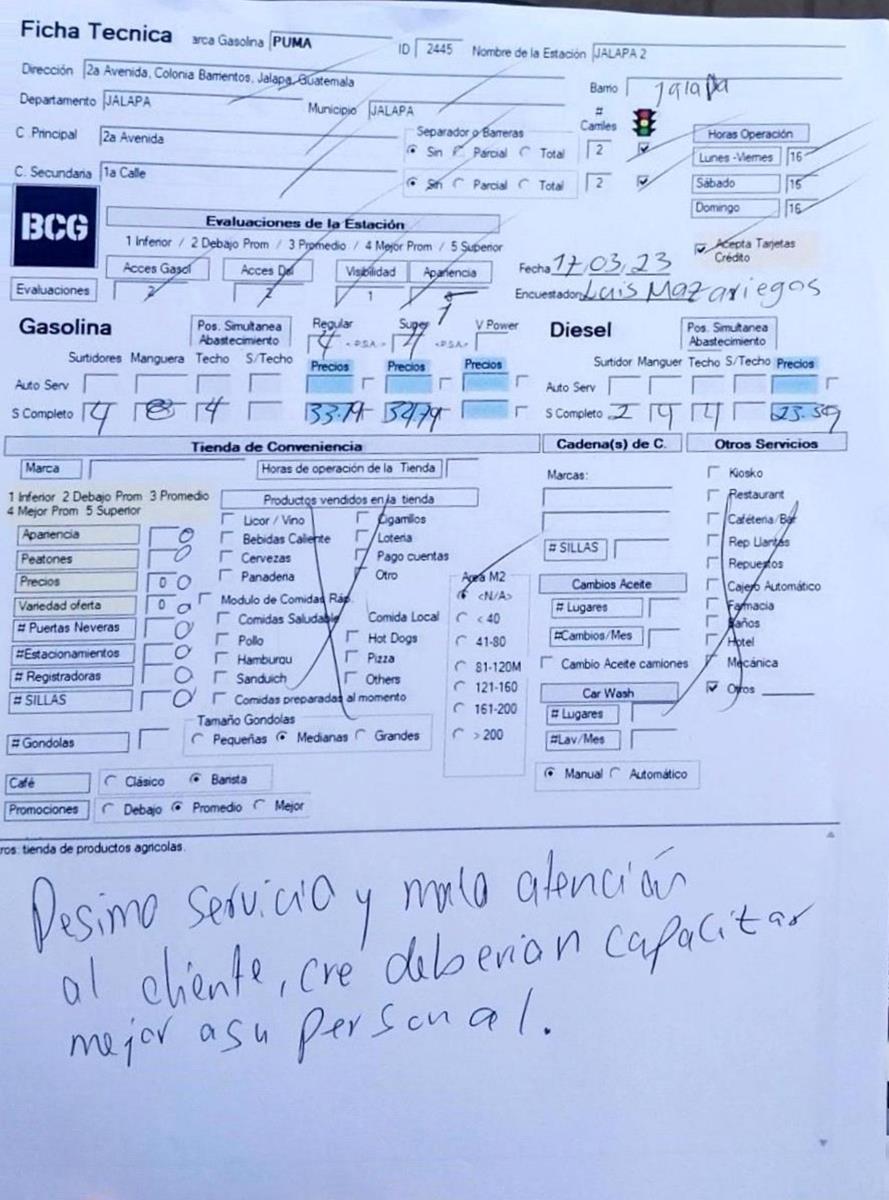 Ficha Tecnica arca Gasolina PUMA ID 2445 Nombre de la Estación JALAPA 2
Dirección 2a Avenida, Colonia Barrientos, Jalapa, Guatemala Barrio Jalapa
Departamento JALAPA Municipio JALAPA # Carriles
C. Principal 2a Avenida Separador o Barreras Sin Parcial Total 2 Horas Operación
Lunes -Viernes 16
C. Secundaria 1a Calle Sin Parcial Total 2 Sábado 16
Domingo 16
BCG
Evaluaciones de la Estación
1 Inferior / 2 Debajo Prom / 3 Promedio / 4 Mejor Prom / 5 Superior
Acepta Tarjetas Crédito
Acces Gasol Acces Dsl Visibilidad Apariencia Fecha 17,03,23
Evaluaciones 2 2 1 1 Encuestador Luis Mazariegos
Gasolina Pos. Simultanea Abastecimiento Regular Super V Power Diesel Pos. Simultanea Abastecimiento
4 <PSA> 4 <PSA>
Surtidores Manguera Techo S/Techo Precios Precios Precios Surtidor Manguer Techo S/Techo Precios
Auto Serv Auto Serv
S Completo 4 8 4 33.79 34.79 S Completo 2 4 4 23.59
Tienda de Conveniencia Cadena(s) de C. Otros Servicios
Marca Horas de operación de la Tienda Marcas: Kiosko
1 Inferior 2 Debajo Prom 3 Promedio
4 Mejor Prom 5 Superior
Productos vendidos en la tienda Restaurant
Apariencia 0 Licor / Vino Cigarrillos Cafétería/Bar
Peatones 0 Bebidas Caliente Loteria # SILLAS Rep Llantas
Precios 0 0 Cervezas Pago cuentas Repuestos
Panaderia Otro Area M2 Cambios Aceite Cajero Automático
Variedad oferta 0 0 Modulo de Comidas Ráp. <N/A> # Lugares Farmacia
# Puertas Neveras 0 Comidas Saludable Comida Local < 40 Baños
#Estacionamientos 0 Pollo Hot Dogs 41-80 #Cambios/Mes Hotel
# Registradoras 0 Hamburgu Pizza 81-120M Cambio Aceite camiones Mecánica
# SILLAS 0 Sanduich Others 121-160 Car Wash Otros
Comidas preparadas al momento 161-200 # Lugares
Tamaño Gondolas
# Gondolas Pequeñas Medianas Grandes > 200 #Lav/Mes
Café Clásico Barista Manual Automático
Promociones Debajo Promedio Mejor
ros: tienda de productos agricolas.
Pesimo servicio y mala atención
al cliente, cre deberian capacitar
mejor a su personal.